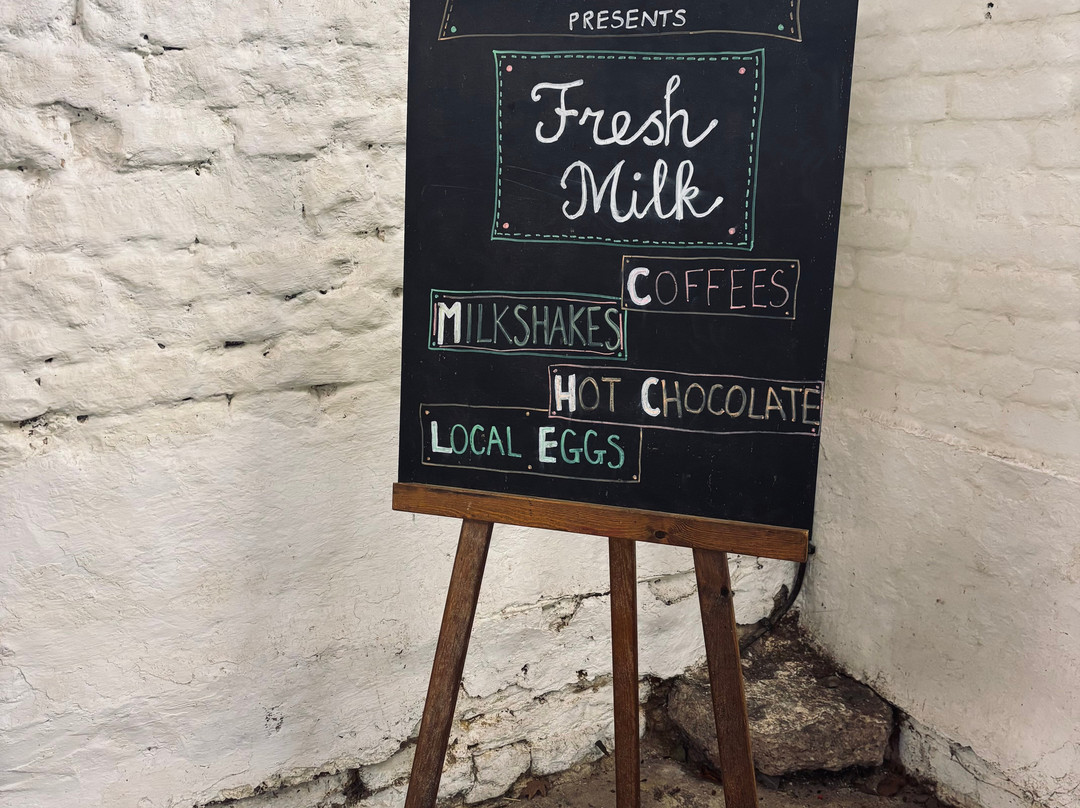 PRESENTS
Fresh
Milk
COFFEES
MILKSHAKES
HOT CHOCOLATE
LOCAL EGGS